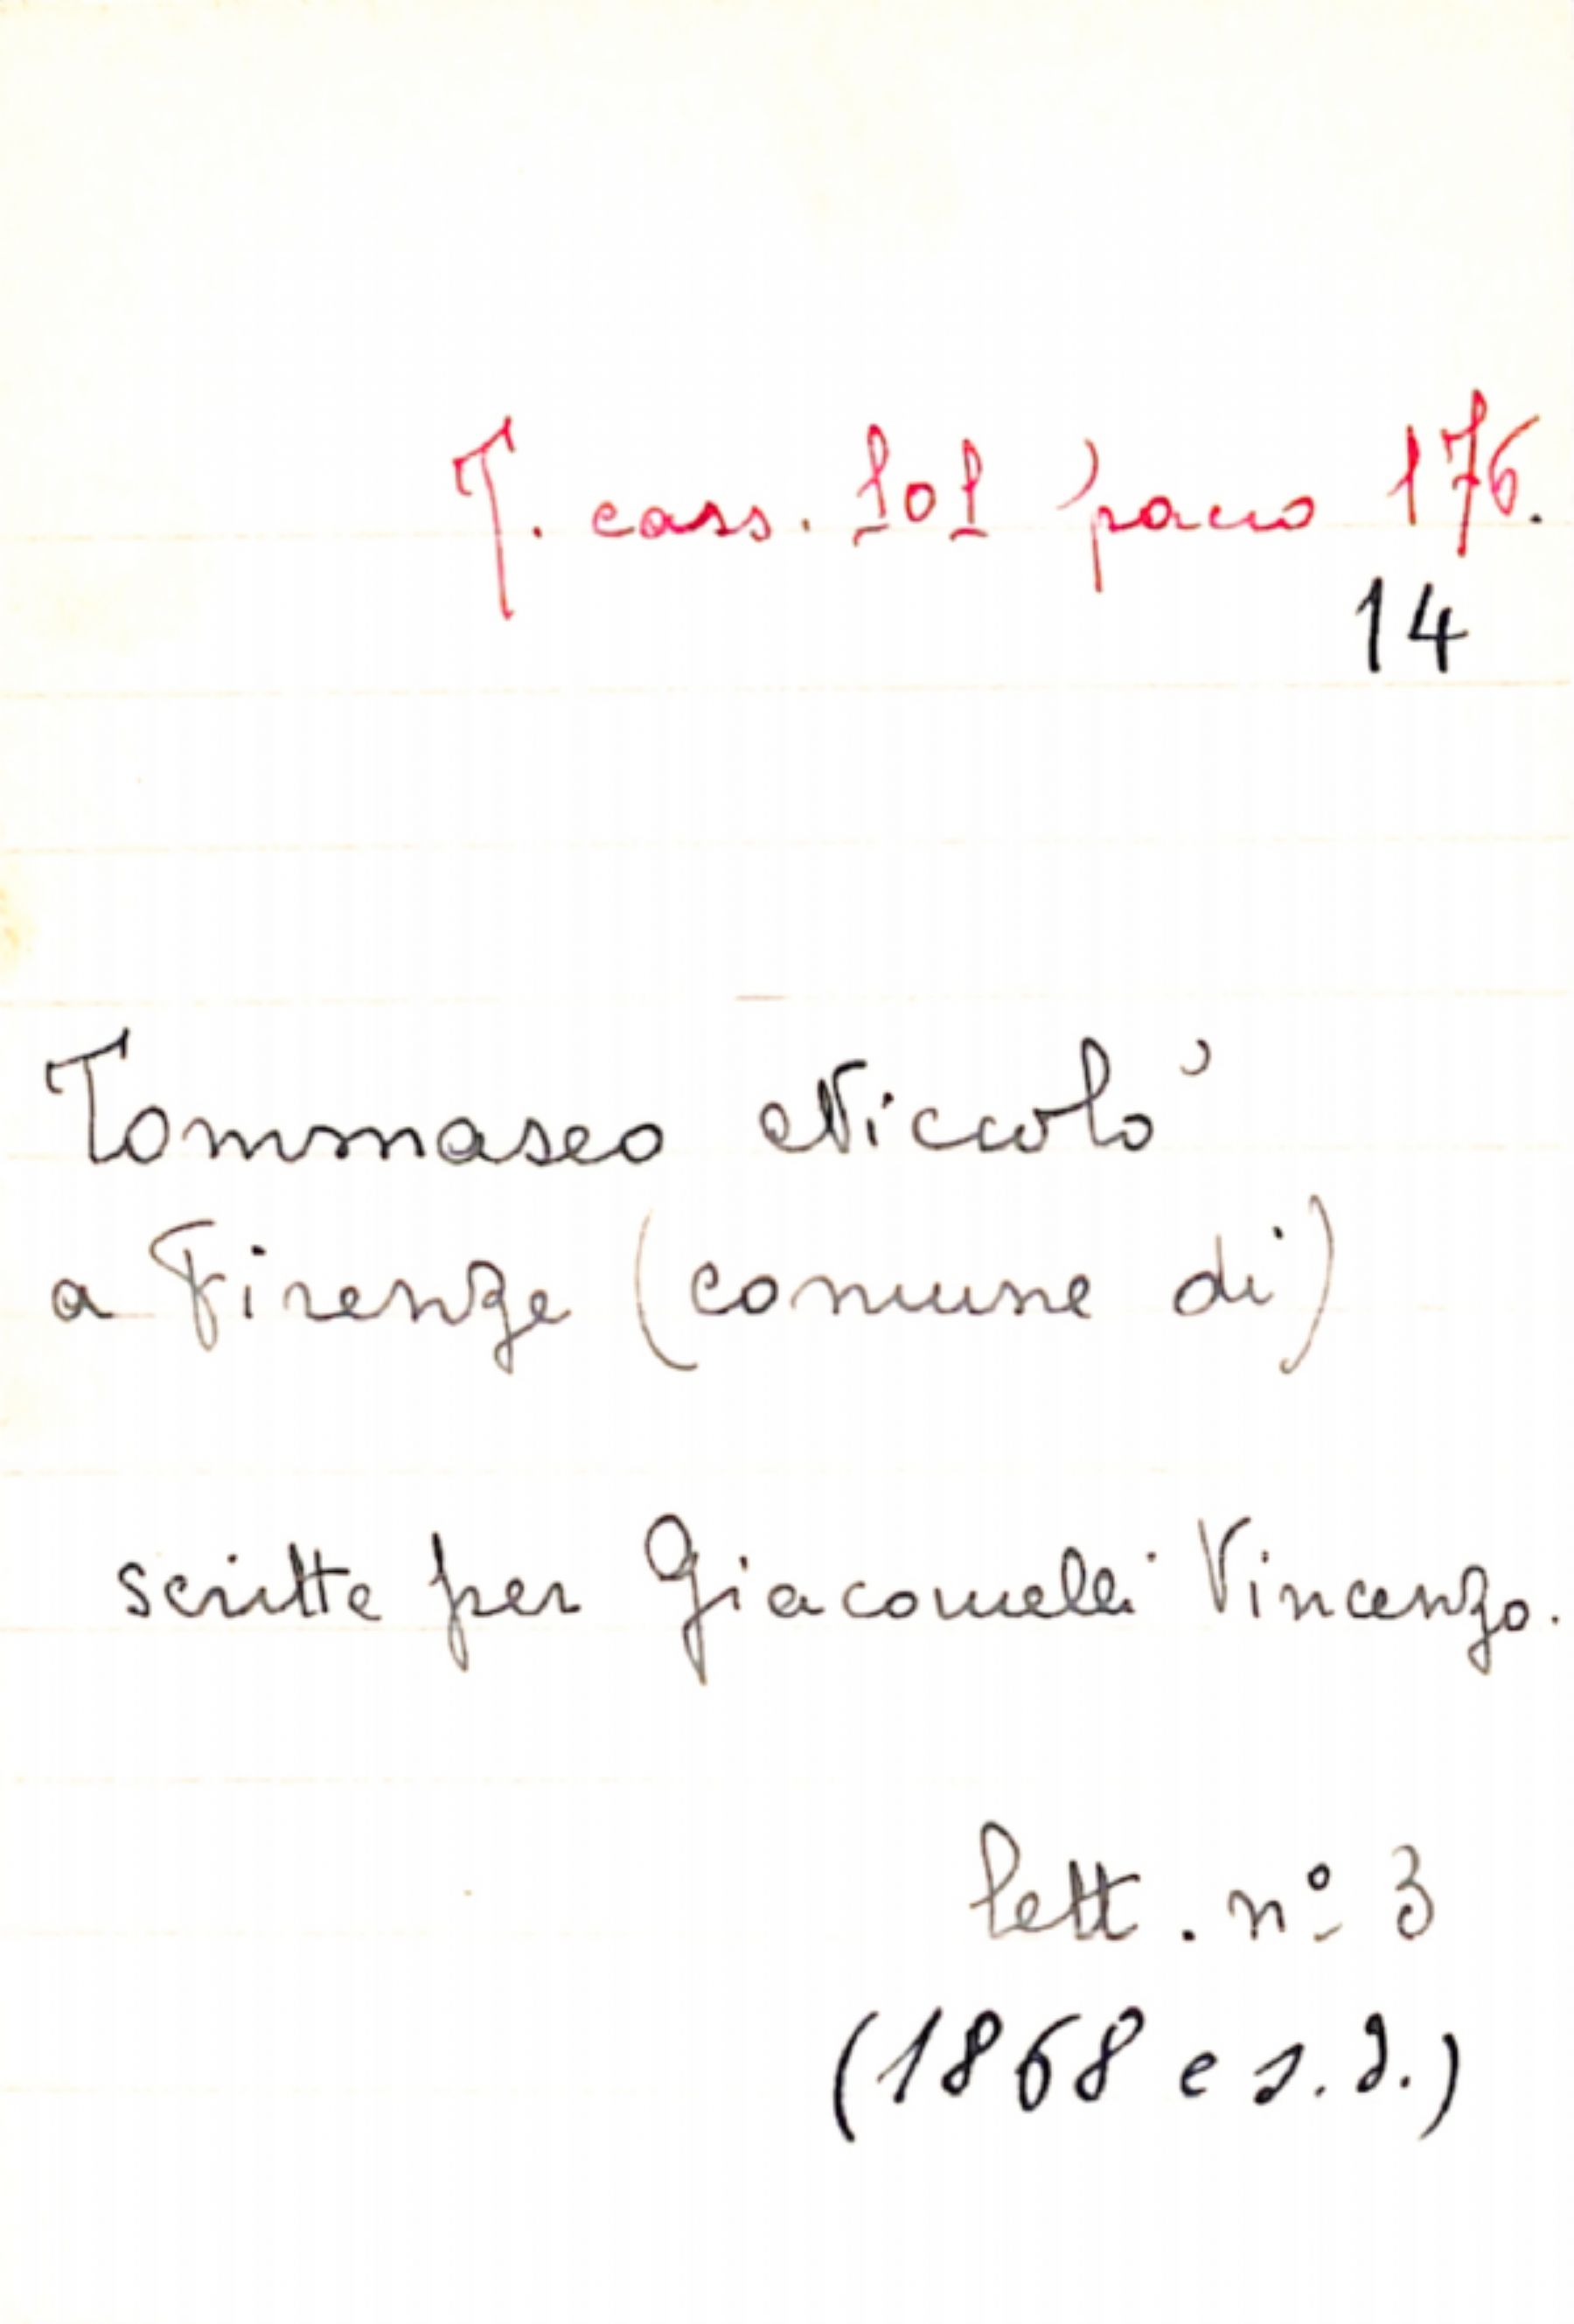 T. cass. 101 pacco 176.
14
Tommaseo Niccolò
a Firenze (comune di)
scritte per Giacomelli Vincenzo.
lett. nº 3
(1868 e s.d.)